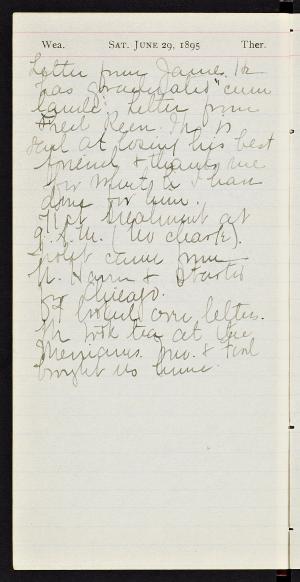 Wea. SAT. JUNE 29, 1895 Ther.
Letter from James. He
has graduated "cum
laude". Letter from
Fred Keen. He is
at losing his best
friend & thanks me
for what I have
done for him.
treatment at
9 A.M. (no charge).
came from
N. Haven &
for Chicago.
I looked over letters.
We took tea at the
Merriams. &
brought us home.